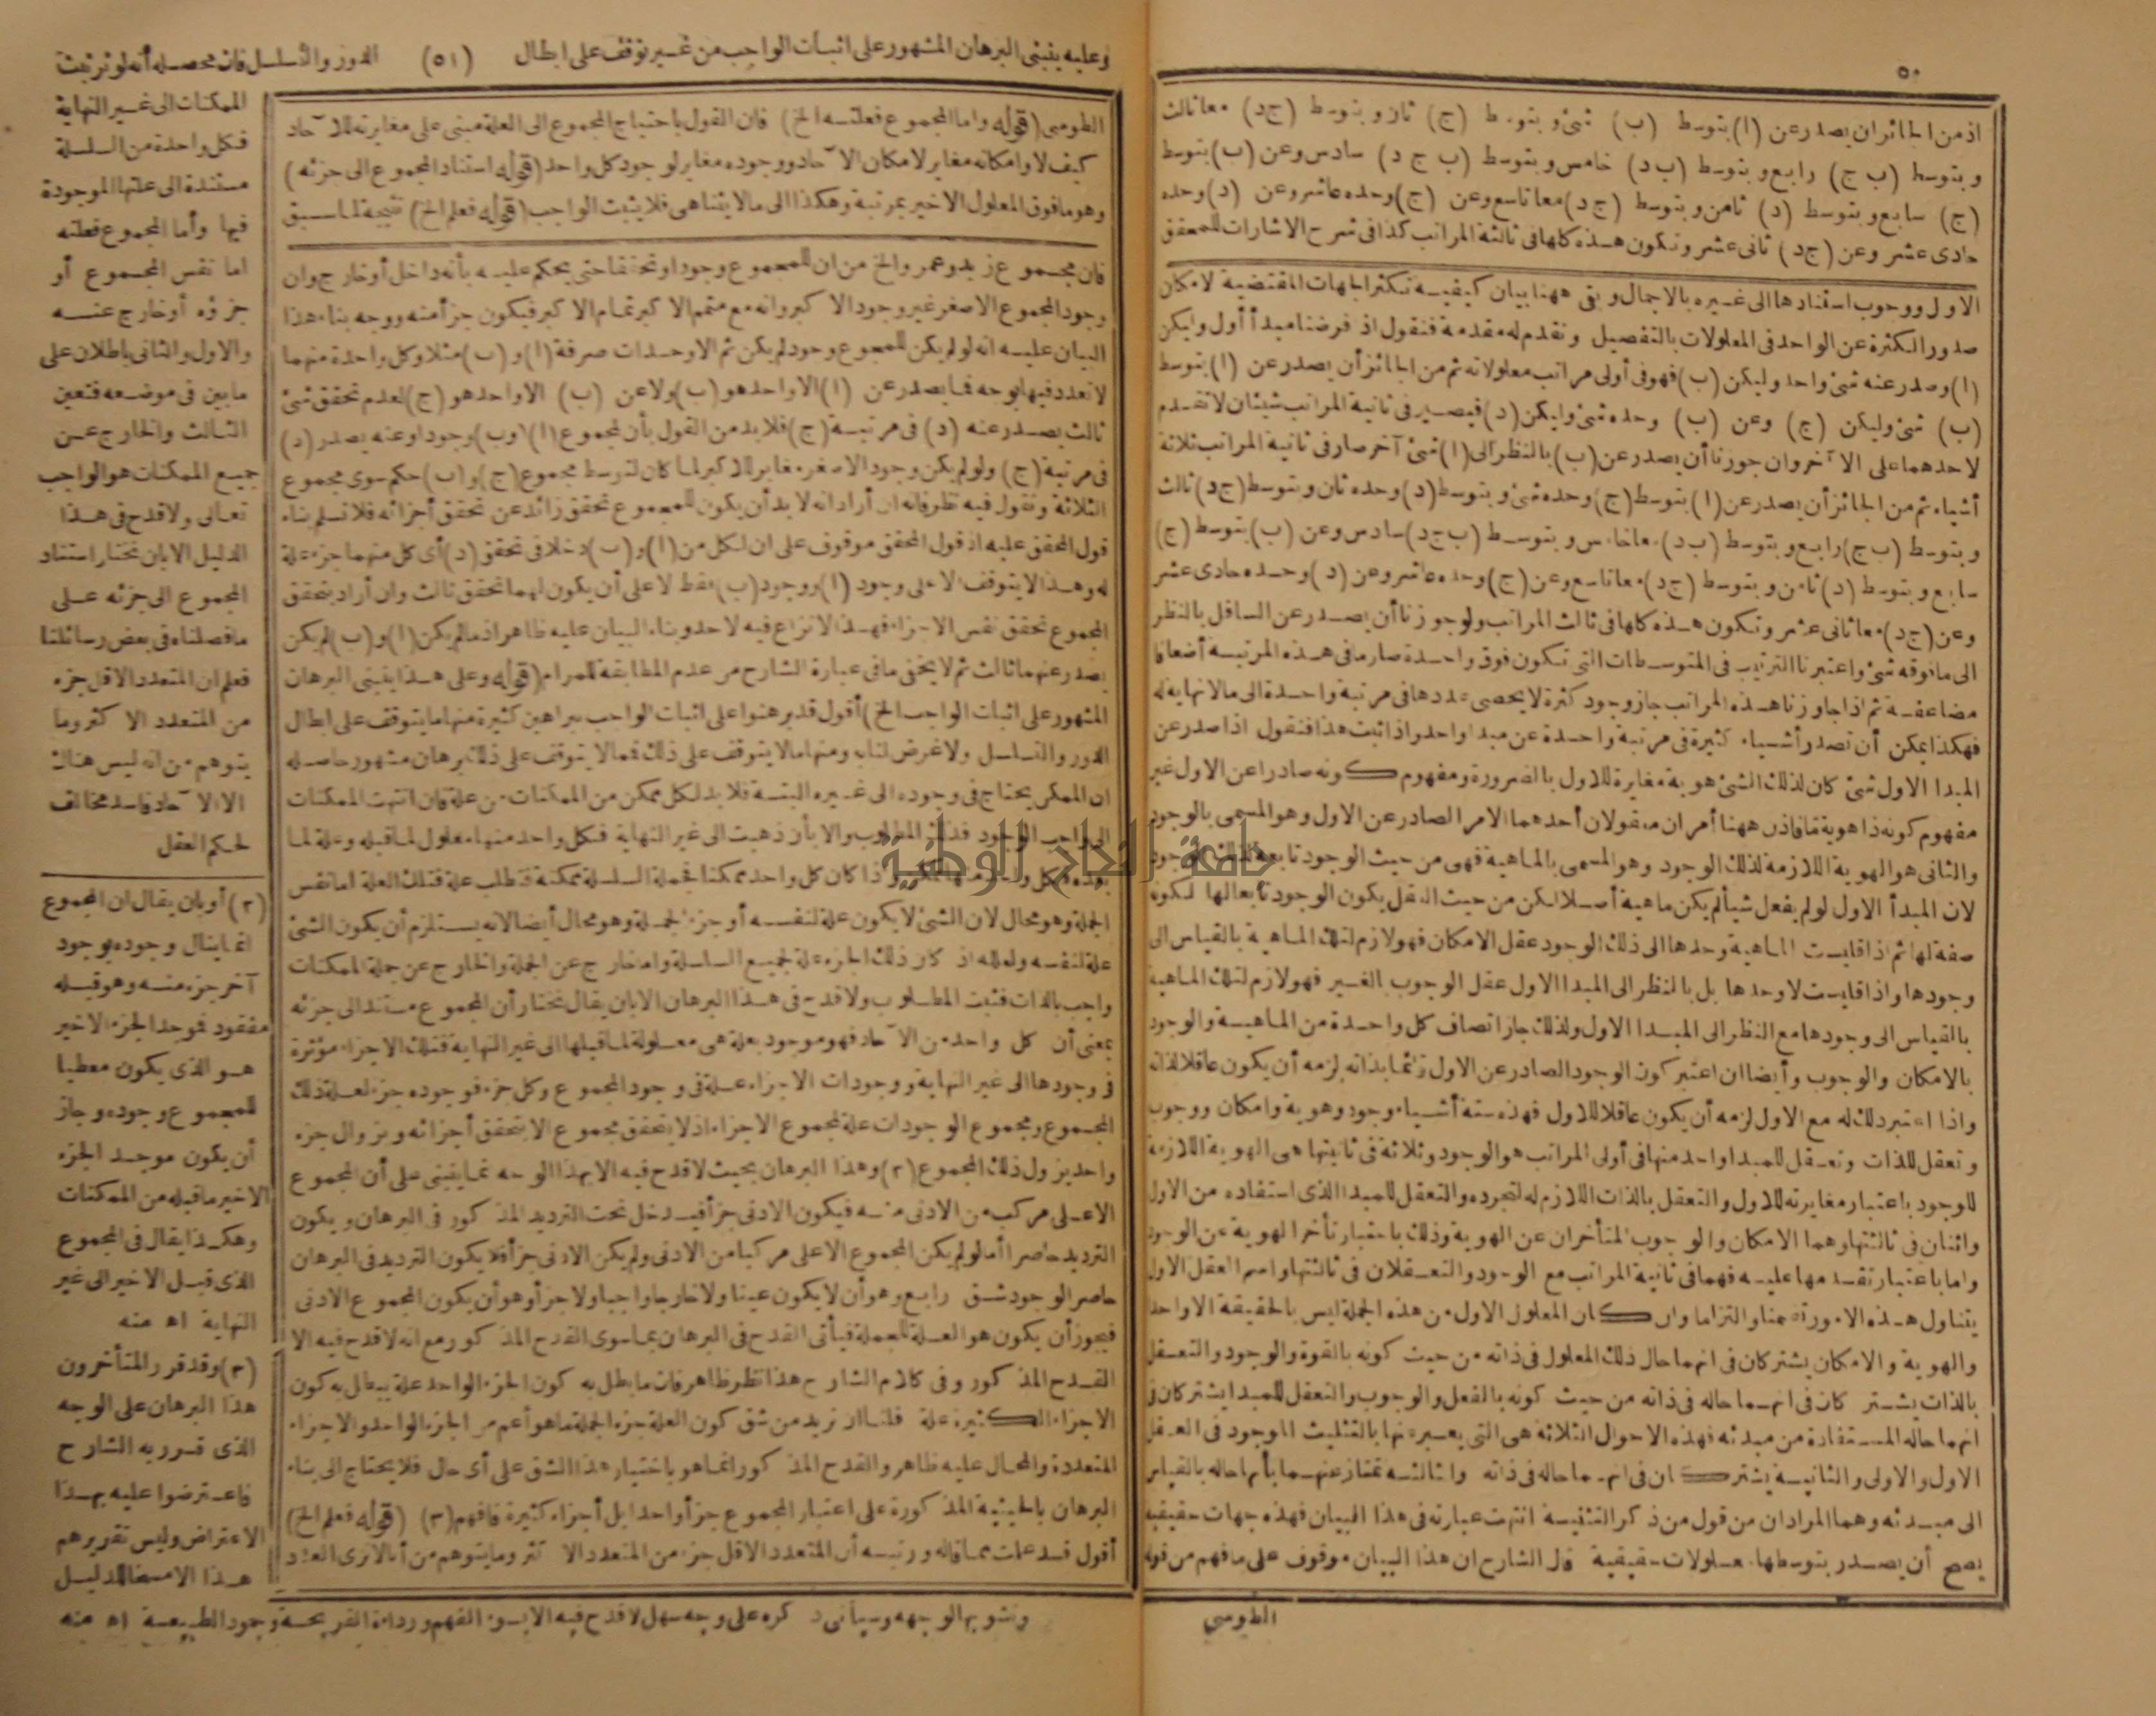 ٥٠
اذ من الجائز ان يصدر عن (ا) بتوسط (ب) شئ وبتوسط (ج) ثان وبتوسط (ج د) معا ثالث
وبتوسط (ب ج) رابع وبتوسط (ب د) خامس وبتوسط (ب ج د) سادس وعن (ب) بتوسط
(ج) سابع وبتوسط (د) ثامن وبتوسط (ج د) معا تاسع وعن (ج) وحده عاشر وعن (د) وحده
حادى عشر وعن (ج د) ثانى عشر وتكون هذه كلها فى ثالثة المراتب كذا فى شرح الاشارات للمحقق
الاول ووجوب استنادها الى غيره بالاجمال وبقى ههنا بيان كيفية تكثر الجهات المقتضية لامكان
صدور الكثرة عن الواحد فى المعلولات بالتفصيل ونقدم له مقدمة فنقول اذ فرضنا مبدأ أول وليكن
(ا) وصدر عنه شئ واحد وليكن (ب) فهو فى أولى مراتب معلولاته ثم من الجائز أن يصدر عن (ا) بتوسط
(ب) شئ وليكن (ج) وعن (ب) وحده شئ وليكن (د) فيصير فى ثانية المراتب شيئان لا تقدم
لاحدهما على الآخر وان جوزنا أن يصدر عن (ب) بالنظر الى (ا) شئ آخر صار فى ثانية المراتب ثلاثة
أشياء ثم من الجائز أن يصدر عن (ا) بتوسط (ج) وحده شئ وبتوسط (د) وحده ثان وبتوسط (ج د) ثالث
وبتوسط (ب ج) رابع وبتوسط (ب د) معا خامس وبتوسط (ب ج د) سادس وعن (ب) بتوسط (ج)
سابع وبتوسط (د) ثامن وبتوسط (ج د) معا تاسع وعن (ج) وحده عاشر وعن (د) وحده حادى عشر
وعن (ج د) معا ثانى عشر وتكون هذه كلها فى ثالث المراتب ولو جوزنا أن يصدر عن السافل بالنظر
الى ما فوقه شئ واعتبرنا الترتيب فى المتوسطات التى تكون فوق واحدة صار ما فى هذه المرتبة أضعافا
مضاعفة ثم اذا جاوزنا هذه المراتب جاز وجود كثرة لا يحصى عددها فى مرتبة واحدة الى ما لا نهاية له
فهكذا يمكن أن تصدر أشياء كثيرة فى مرتبة واحدة عن مبدا واحد واذا ثبت هذا فنقول اذا صدر عن
المبدا الاول شئ كان لذلك الشئ هوية مغايرة للاول بالضرورة ومفهوم كونه صادرا عن الاول غير
مفهوم كونه ذا هوية ما فاذن ههنا أمران معقولان أحدهما الامر الصادر عن الاول وهو المسمى بالوجود
والثانى هو الهوية اللازمة لذلك الوجود وهو المسمى بالماهية فهى من حيث الوجود تابعة لذلك الوجود
لان المبدأ الاول لو لم يفعل شيأ لم يكن ماهية أصلا لكن من حيث العقل يكون الوجود تابعا لها لكونه
صفة لها ثم اذا قايست الماهية وحدها الى ذلك الوجود عقل الامكان فهو لازم لتلك الماهية بالقياس الى
وجودها واذا قايست لا وحدها بل بالنظر الى المبدا الاول عقل الوجوب بالغير فهو لازم لتلك الماهية
بالقياس الى وجودها مع النظر الى المبدا الاول ولذلك جاز اتصاف كل واحدة من الماهية والوجود
بالامكان والوجوب وأيضا ان اعتبر كون الوجود الصادر عن الاول قائما بذاته لزمه أن يكون عاقلا لذاته
واذا اعتبر ذلك له مع الاول لزمه أن يكون عاقلا للاول فهذه ستة أشياء وجود وهوية وامكان ووجوب
وتعقل للذات وتعقل للمبدا واحد منها فى أولى المراتب هو الوجود وثلاثة فى ثانيتها هى الهوية اللازمة
للوجود باعتبار مغايرته للاول والتعقل بالذات اللازم له لتجرده والتعقل للمبدا الذى استفاده من الاول
واثنان فى ثالثتها وهما الامكان والوجوب المتأخران عن الهوية وذلك باعتبار تأخر الهوية عن الوجود
واما باعتبار تقدمها عليه فهما فى ثانية المراتب مع الوجود والتعقلان فى ثالثتها واسم العقل الاول
يتناول هذه الامور تضمنا والتزاما وان كان المعلول الاول من هذه الجملة ليس بالحقيقة الا واحدا
والهوية والامكان يشتركان فى انهما حال ذلك المعلول فى ذاته من حيث كونه بالقوة والوجود والتعقل
بالذات يشتركان فى انهما حاله فى ذاته من حيث كونه بالفعل والوجوب والتعقل للمبدا يشتركان فى
انهما حاله المستفادة من مبدئه فهذه الاحوال الثلاثة هى التى يعبر عنها بالتثليث الموجود فى العقل
الاول والاولى والثانية يشتركان فى انهما حاله فى ذاته والثالثة تمتاز عنهما بأنها حاله بالقياس
الى مبدئه وهما المرادان من قول من ذكر التثنية انتهت عبارته فى هذا البيان فهذه جهات حقيقية
يصح أن يصدر بتوسطها معلولات حقيقية قال الشارح ان هذا البيان موقوف على ما فهم من قوله
الطوسي
وعليه يبتنى البرهان المشهور على اثبات الواجب من غير توقف على ابطال (٥١) الدور والتسلسل فان محصله أنه لو ترتبت
الطوسى (قوله واما المجموع فعلته الخ) فان القول باحتياج المجموع الى العلة مبنى على مغايرته للآحاد
كيف لا وامكانه مغاير لامكان الآحاد ووجوده مغاير لوجود كل واحد (قوله استناد المجموع الى جزئه)
وهو ما فوق المعلول الاخير بمرتبة وهكذا الى ما لا يتناهى فلا يثبت الواجب (قوله فعلم الخ) نتيجة لما سبق
فان مجموع زيد وعمرو الخ من ان للمجموع وجودا وتحققا حتى يحكم عليه بأنه داخل أو خارج وان
وجود المجموع الاصغر غير وجود الاكبر وانه مع متمم الاكبر تمام الاكبر فيكون جزأ منه ووجه بناء هذا
البيان عليه انه لو لم يكن للمجموع وجود لم يكن ثم الا وحدات صرفة (ا) و (ب) مثلا وكل واحدة منهما
لا تعدد فيها بوجه فما يصدر عن (ا) الا واحد هو (ب) ولا عن (ب) الا واحد هو (ج) لعدم تحقق شئ
ثالث يصدر عنه (د) فى مرتبة (ج) فلا بد من القول بأن لمجموع (ا) و(ب) وجودا وعنه يصدر (د)
فى مرتبة (ج) ولو لم يكن وجود الاصغر مغاير للاكبر لما كان لتوسط مجموع (ج) و(ب) حكم سوى مجموع
الثلاثة ونقول فيه نظر فانه ان أراد انه لا بد أن يكون للمجموع تحقق زائد عن تحقق أجزائه فلا نسلم بناء
قول المحقق عليه اذ قول المحقق موقوف على ان لكل من (ا) و(ب) دخلا فى تحقق (د) أى كل منهما جزء علة
له وهذا لا يتوقف الا على وجود (ا) ووجود (ب) فقط لا على أن يكون لهما تحقق ثالث وان أراد بتحقق
المجموع تحقق نفس الاجزاء فهذا لا نزاع فيه لاحد وبناء البيان عليه ظاهر اذ ما لم يكن (ا) و(ب) لم يكن
يصدر عنهما ثالث ثم لا يخفى ما فى عبارة الشارح من عدم المطابقة للمرام (قوله وعلى هذا يبتنى البرهان
المشهور على اثبات الواجب الخ) أقول قد برهنوا على اثبات الواجب ببراهين كثيرة منها ما يتوقف على ابطال
الدور والتسلسل ولا غرض لنا به ومنها ما لا يتوقف على ذلك فما لا يتوقف على ذلك برهان مشهور حاصله
ان الممكن يحتاج فى وجوده الى غيره البتة فلا بد لكل ممكن من الممكنات من علة فان انتهت الممكنات
الى واجب الوجود فذلك المطلوب والا بأن ذهبت الى غير النهاية فكل واحد منها معلول لما قبله وعلة لما
جامعة النجاح الوطنية
بعده كل واحد منها ممكن واذا كان كل واحد ممكنا فجملة السلسلة ممكنة فتطلب علة فتلك العلة اما نفس
الجملة وهو محال لان الشئ لا يكون علة لنفسه أو جزء الجملة وهو محال أيضا لانه يستلزم أن يكون الشئ
علة لنفسه ولعلله اذ كان ذلك الجزء علة لجميع السلسلة واما خارج عن الجملة والخارج عن جملة الممكنات
واجب بالذات فثبت المطلوب ولا قدح فى هذا البرهان الا بان يقال نختار أن المجموع مستند الى جزئه
بمعنى أن كل واحد من الآحاد فهو موجود بعلة هى معلولة لما قبلها الى غير النهاية فتلك الاجزاء مؤثرة
فى وجودها الى غير النهاية ووجودات الاجزاء علة فى وجود المجموع وكل جزء فوجوده جزء لعلة ذلك
المجموع ومجموع الوجودات علة لمجموع الاجزاء اذ لا يتحقق مجموع الا بتحقق أجزائه وبزوال جزء
واحد يزول ذلك المجموع (٢) وهذا البرهان بحيث لا قدح فيه الا بهذا الوجه انما يبتنى على أن المجموع
الاعلى مركب من الادنى منه فيكون الادنى جزأ فيدخل تحت الترديد المذكور فى البرهان ويكون
الترديد حاصرا أما لو لم يكن المجموع الاعلى مركبا من الادنى ولم يكن الادنى جزأ فلا يكون الترديد فى البرهان
حاصر الوجود شق رابع وهو أن لا يكون عينا ولا خارجا واجبا ولا جزأ وهو أن يكون المجموع الادنى
فيجوز أن يكون هو العلة للجملة فيأتى القدح فى البرهان بما سوى القدح المذكور مع انه لا قدح فيه الا
القدح المذكور وفى كلام الشارح هذا نظر ظاهر فان ما بطل به كون الجزء الواحد علة يبطل به كون
الاجزاء الكثيرة علة فلنا ان نريد من شق كون العلة جزء الجملة ما هو أعم من الجزء الواحد والاجزاء
المتعددة والمحال عليه ظاهر والقدح المذكور انما هو باختيار هذا الشق على أى حال فلا يحتاج الى بناء
البرهان بالحيثية المذكورة على اعتبار المجموع جزأ واحدا بل أجزاء كثيرة فافهم (٣) (قوله فعلم الخ)
أقول قد علمت مما قاله ورتبه أن المتعدد الاقل جزء من المتعدد الاكثر وما يتوهم من أنا لا نرى العدد
الممكنات الى غير النهاية
فكل واحدة من السلسلة
مستندة الى علتها الموجودة
فيها وأما المجموع فعلته
اما نفس المجموع أو
جزؤه أو خارج عنه
والاول والثانى باطلان على
ما بين فى موضعه فتعين
الثالث والخارج عن
جميع الممكنات هو الواجب
تعالى ولا قدح فى هذا
الدليل الا بان نختار استناد
المجموع الى جزئه على
ما فصلناه فى بعض رسائلنا
فعلم ان المتعدد الاقل جزء
من المتعدد الاكثر وما
يتوهم من انه ليس هناك
الا الآحاد فاسد مخالف
لحكم العقل
(٢) أو بان يقال ان المجموع
انما ينال وجوده بوجود
آخر جزء منه وهو قبله
مفقود فموجد الجزء الاخير
هو الذى يكون معطيا
للمجموع وجوده وجاز
أن يكون موجد الجزء
الاخير ما قبله من الممكنات
وهكذا يقال فى المجموع
الذى قبل الاخير الى غير
النهاية اه منه
(٣) وقد قرر المتأخرون
هذا البرهان على الوجه
الذى قرر به الشارح
فاعترضوا عليه بهذا
الاعتراض وليس تقريرهم
هذا الا مسخا للدليل
وتشويها لوجهه وسيأتى ذكره على وجه سهل لا قدح فيه الا بسوء الفهم ورداءة القريحة وجمود الطبيعة اه منه